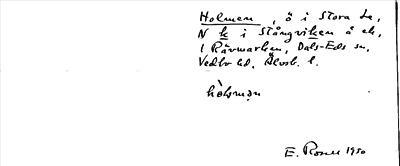 Holmen, ö i Stora Le,
N k i Stångviken å ek,
i Rävmarken, Dals-Eds sn,
Vedbo hd, Älvsb. l.
E. Rosell 1950